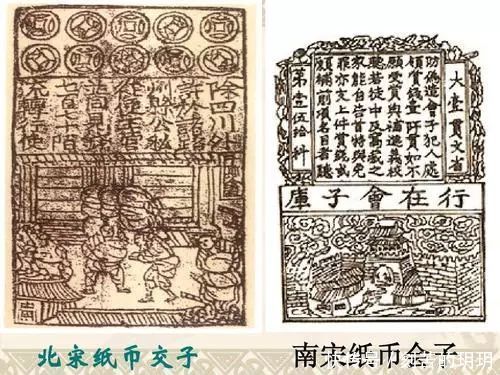 除四川外
許於諸路
州縣公私
從便主管
並同見錢
七百七十陌
流轉行使
大壹貫文省
偽造會子犯人處
賞錢壹阡貫如不
願受賞與補進義校
若徒中及窩藏之
家能自告首特與免
罪亦支上件賞錢或
願補前項名目者聽
第壹伍拾料
行在會子庫
北宋纸币交子
南宋纸币会子
的玥玥